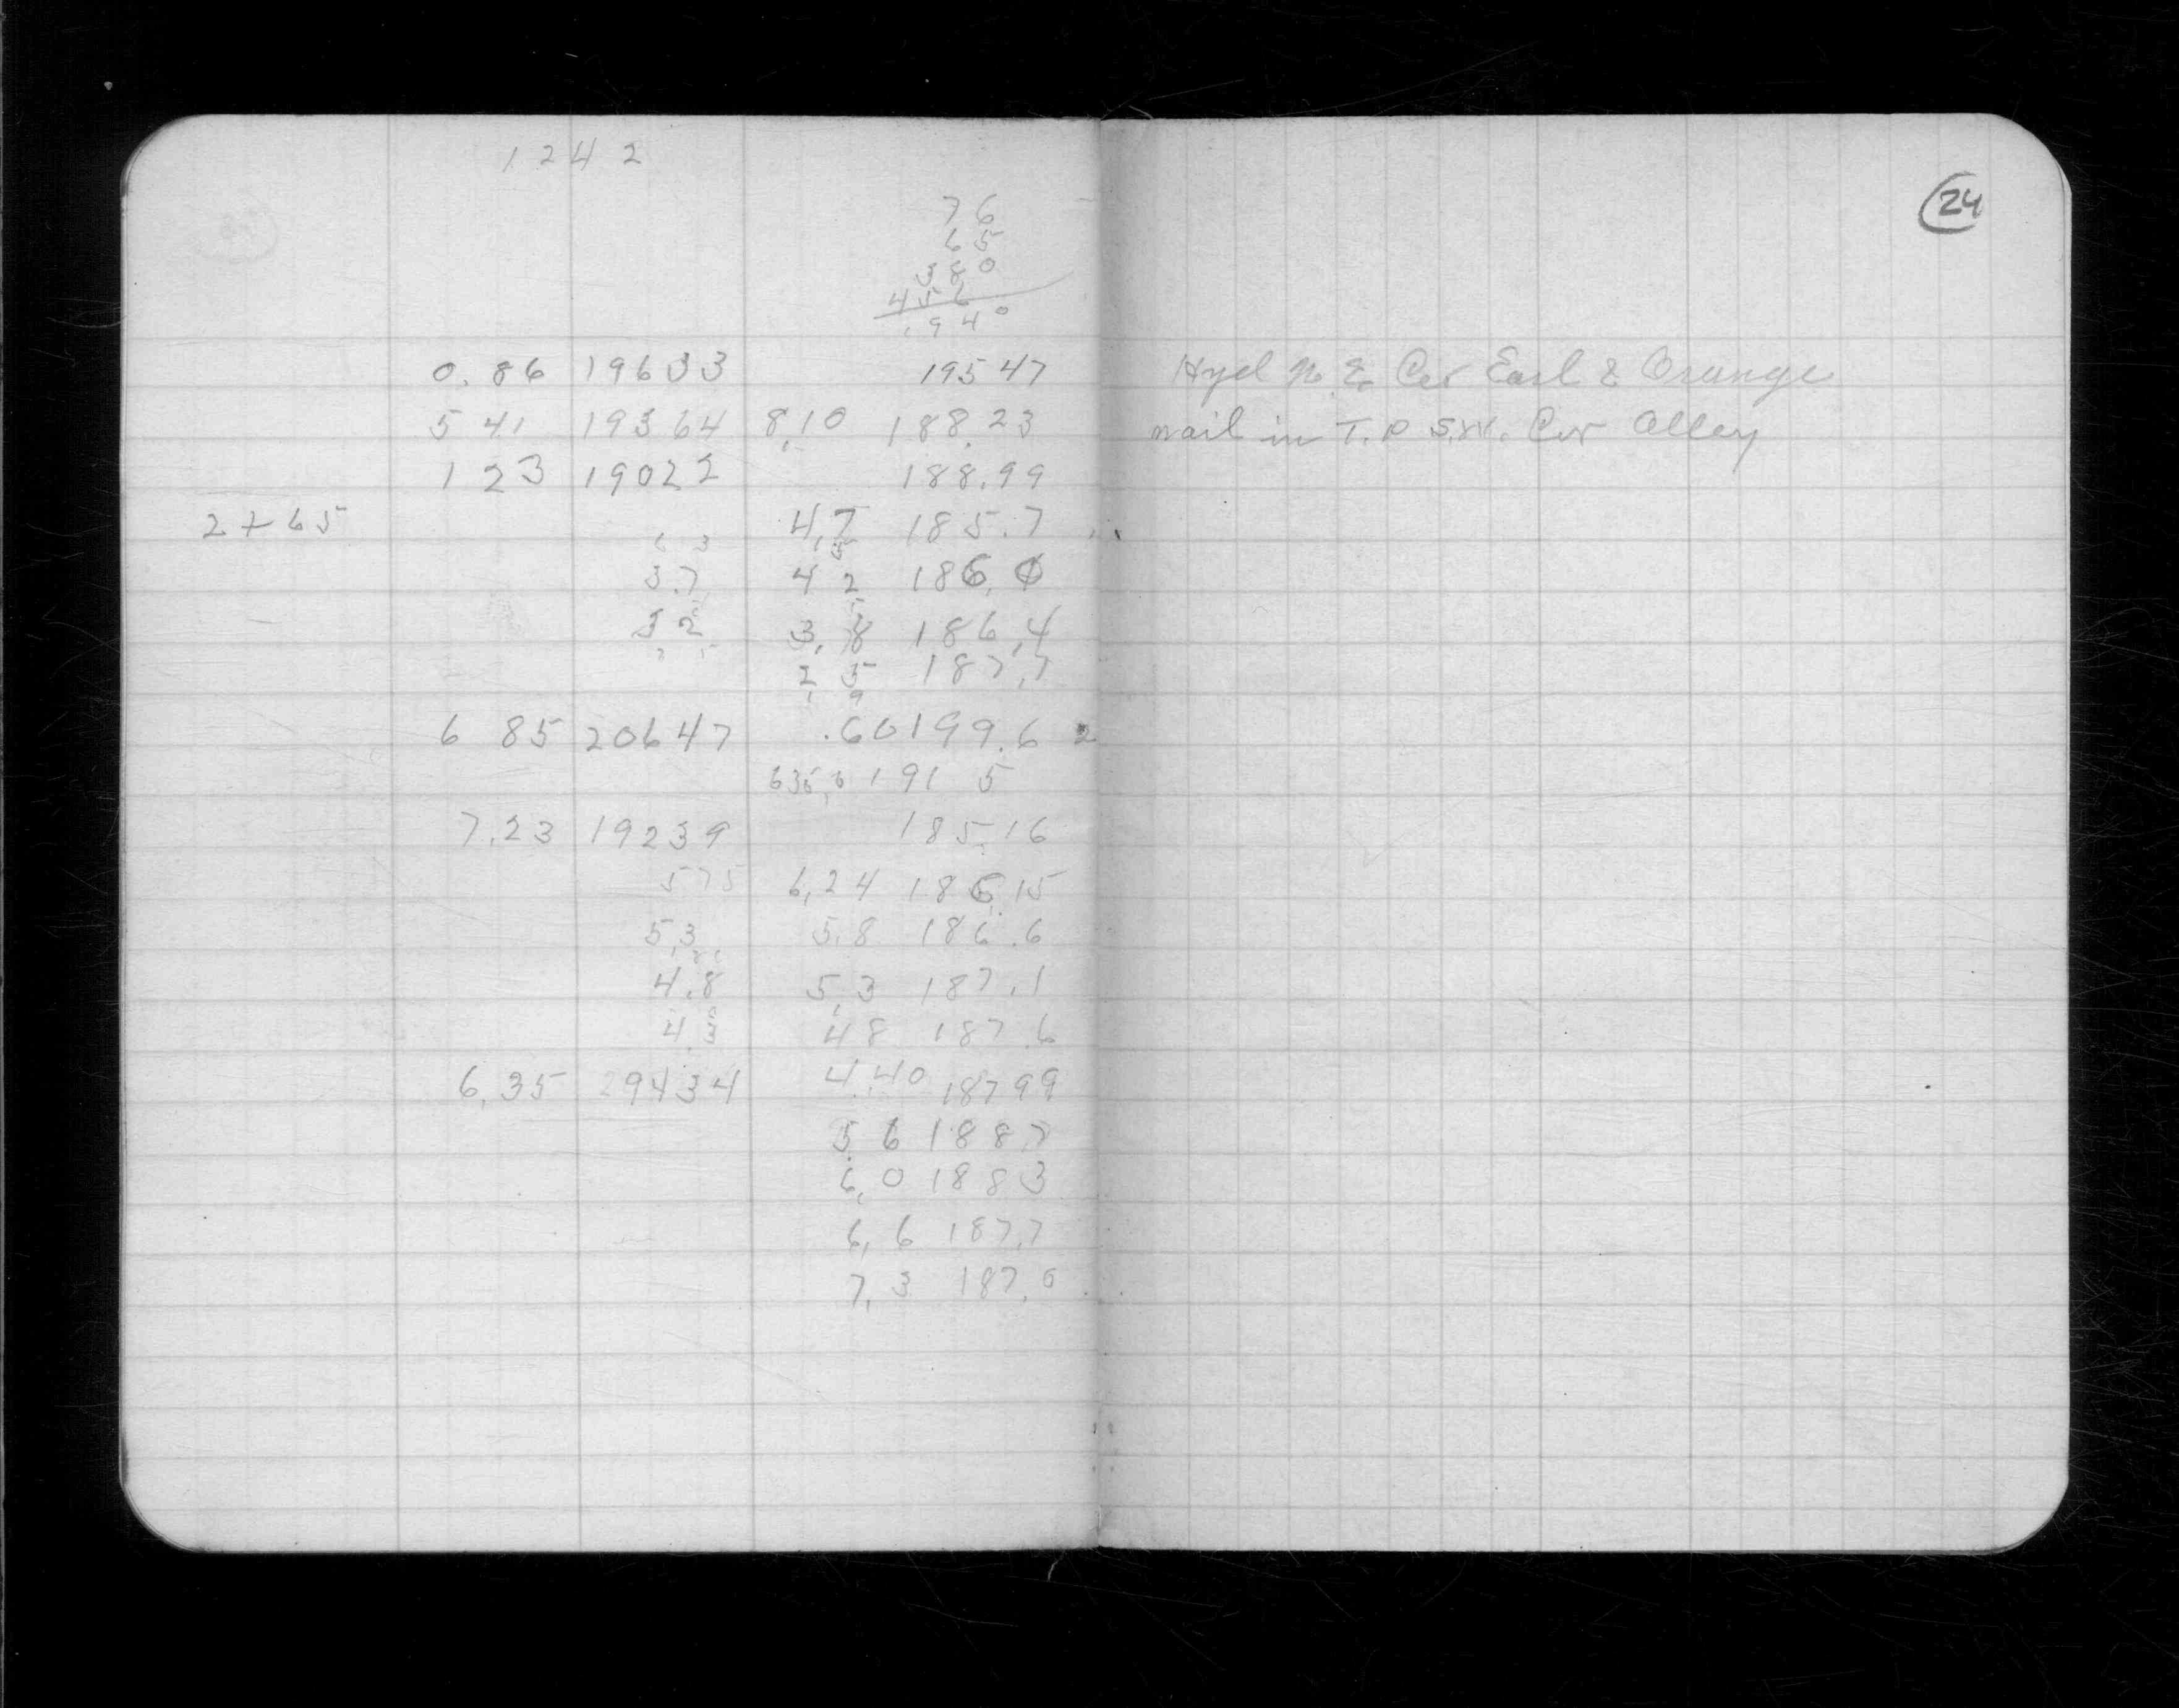 1242
24
76
65
380
456
1940
0.86 19633 19547 Hyd N.E. Cor Earl & Orange
5 41 19364 8.10 188.23 nail in T.P S.W. Cor Alley
1 23 19022 188.99
2+65 4.7 185.7
3.7 4 2 186.0
3 2 3.8 186.4
2 5 187.7
6 85 20647 .60 199.62
635.6 191 5
7.23 19239 185.16
575 6.24 186.15
5.3 5.8 186.6
4.8 5.3 187.1
4.3 48 187.6
6.35 29434 4.40 187 99
5.6 188 7
6.0 188 3
6.6 187.7
7.3 187.0